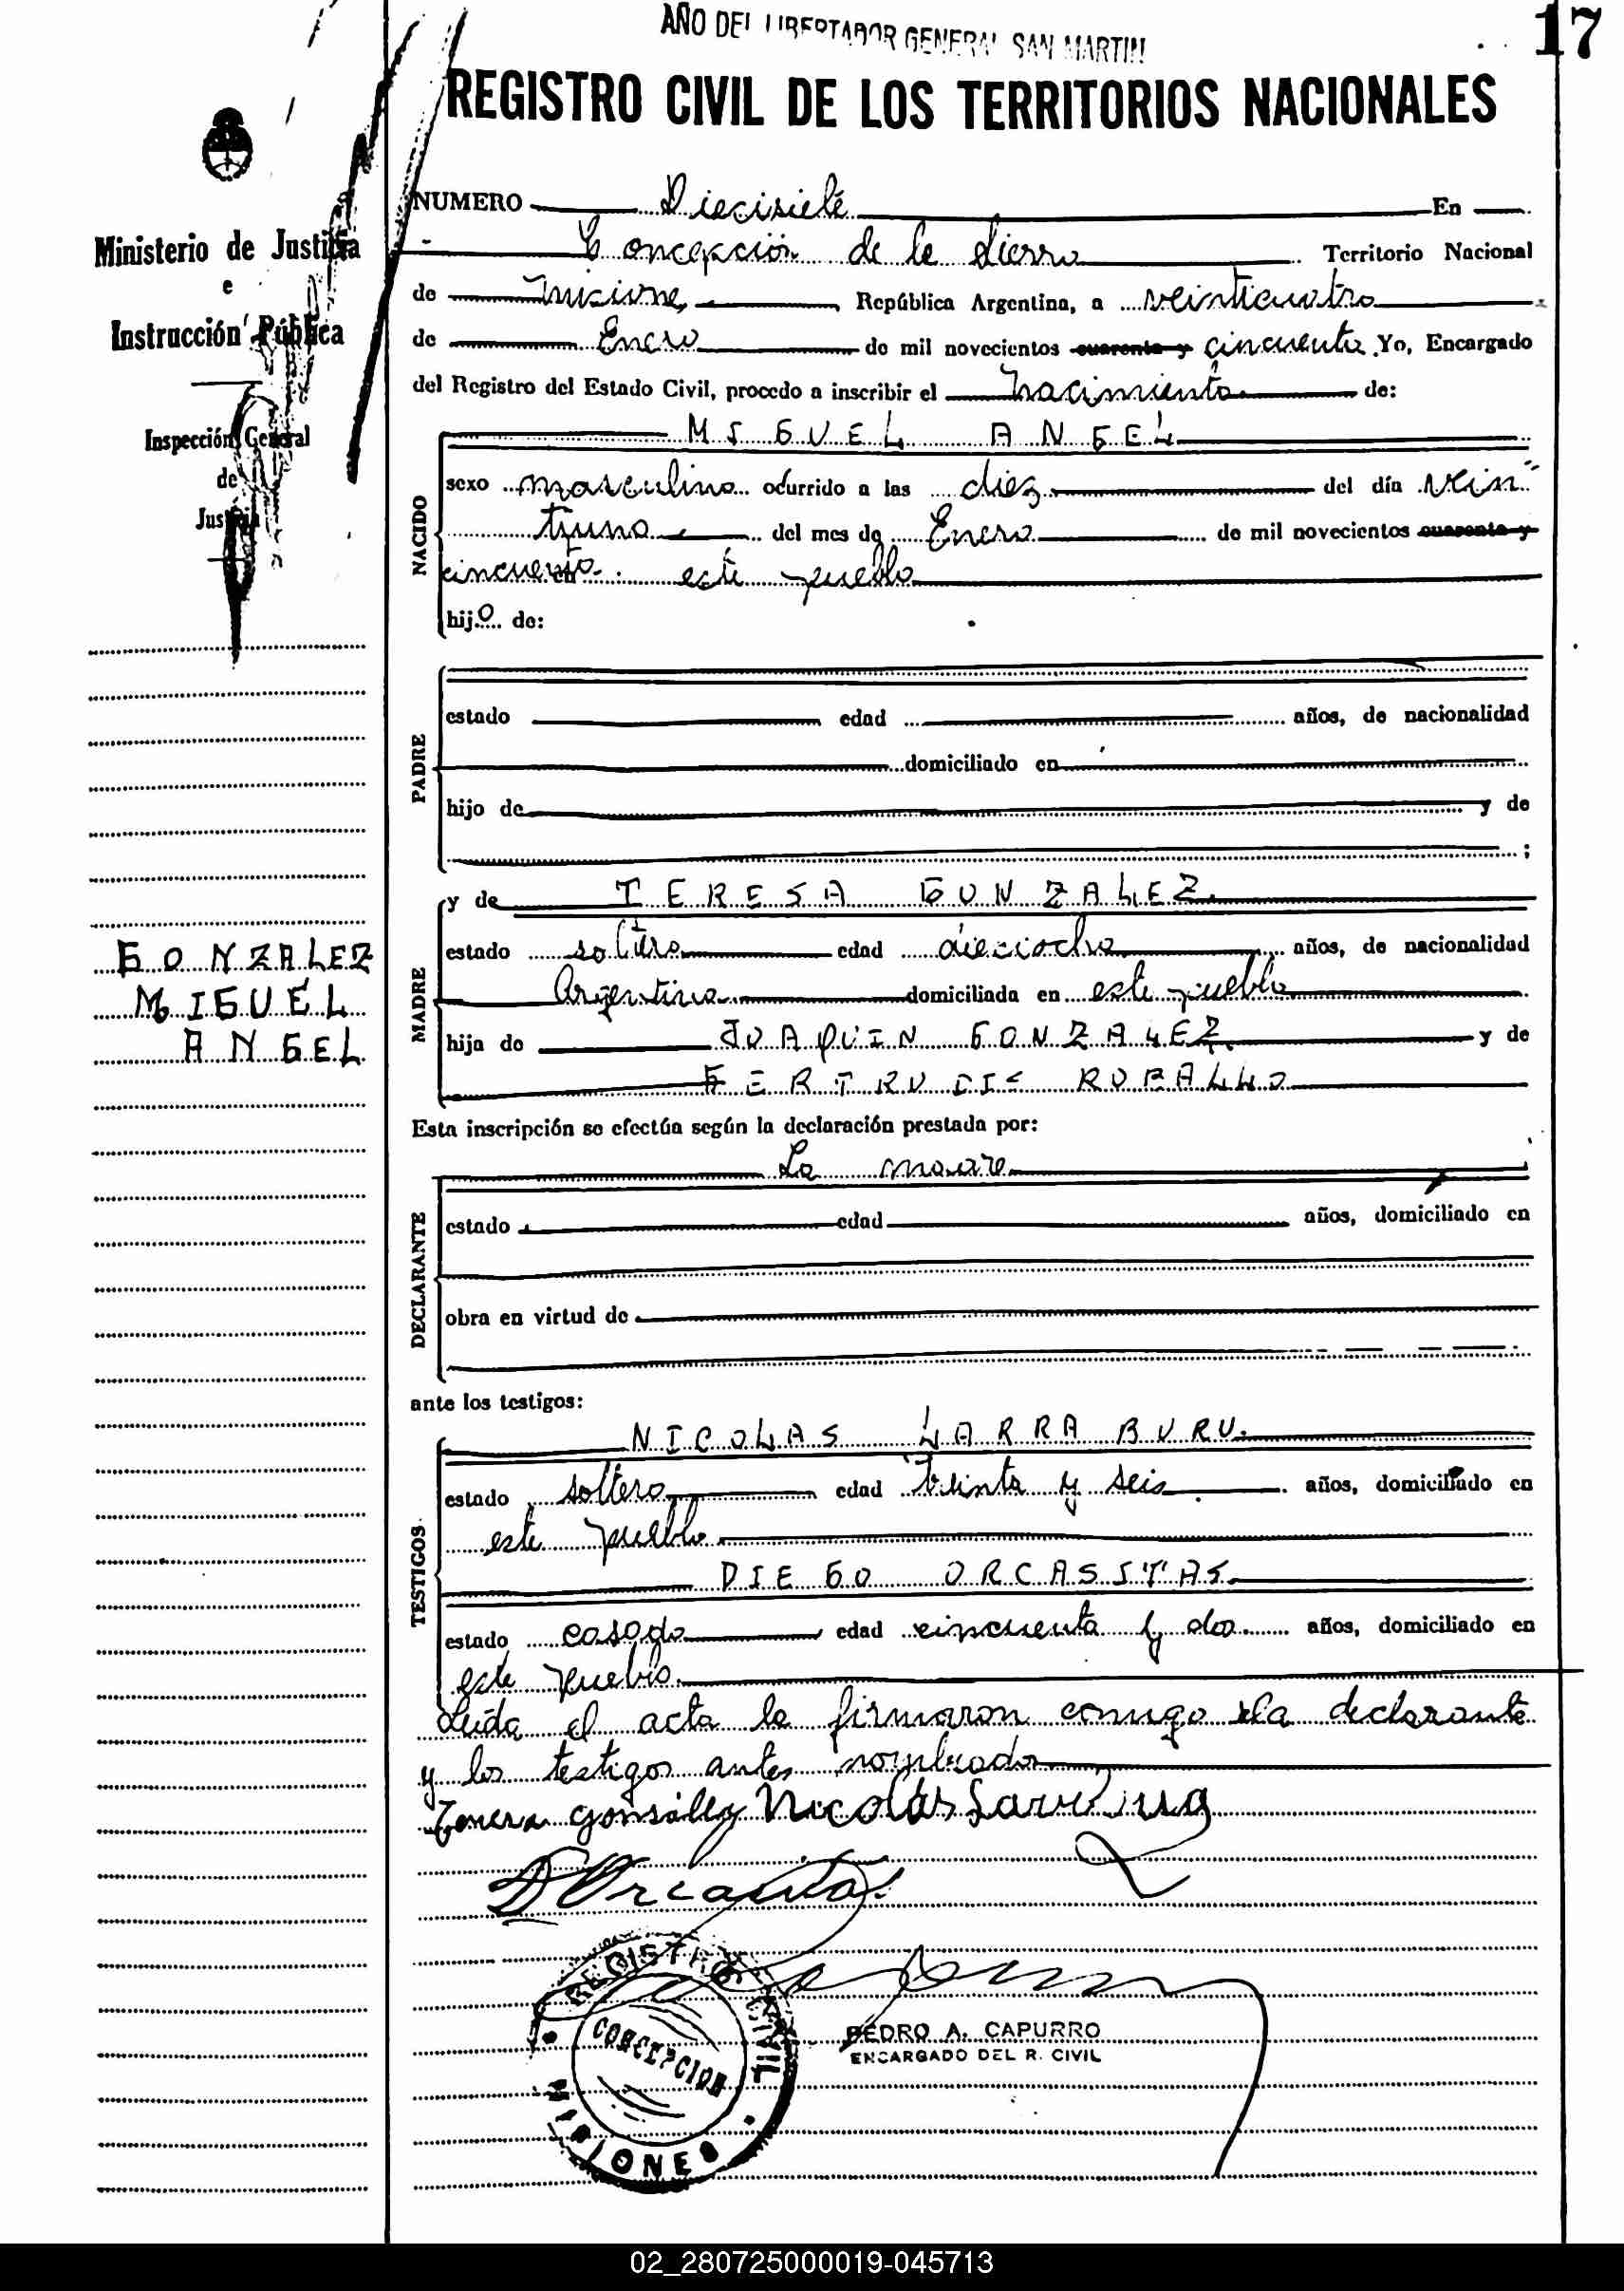 AÑO DEL LIBERTADOR GENERAL SAN MARTIN
17
REGISTRO CIVIL DE LOS TERRITORIOS NACIONALES
Ministerio de Justicia
e
Instrucción Pública
Inspección General
de
Justicia
GONZALEZ
MIGUEL
ANGEL
NUMERO Diecisiete En
Concepción de la Sierra Territorio Nacional
de Misiones República Argentina, a veinticuatro
de Enero de mil novecientos cuarenta y cincuenta. Yo, Encargado
del Registro del Estado Civil, procedo a inscribir el nacimiento de:
NACIDO
MIGUEL ANGEL
sexo masculino ocurrido a las diez del día vein
tiuno del mes de Enero de mil novecientos cuarenta y
cincuenta en este pueblo
hijo de:
PADRE
estado edad años, de nacionalidad
domiciliado en
hijo de y de
;
MADRE
y de TERESA GONZALEZ
estado soltera edad dieciocho años, de nacionalidad
Argentina domiciliada en este pueblo
hija de JOAQUIN GONZALEZ y de
GERTRUDIS ROBALLO
Esta inscripción se efectúa según la declaración prestada por:
DECLARANTE
La madre
estado edad años, domiciliado en
obra en virtud de
ante los testigos:
TESTIGOS
NICOLAS LARRABURU.
estado soltero edad treinta y seis años, domiciliado en
este pueblo
DIEGO ORCASITAS
estado casado edad cincuenta y dos años, domiciliado en
este pueblo
Leida el acta la firmaron conmigo la declarante
y los testigos antes nombrados
Nicolás
REGISTRO CIVIL
CONCEPCION
MISIONES
PEDRO A. CAPURRO
ENCARGADO DEL R. CIVIL
02_280725000019-045713